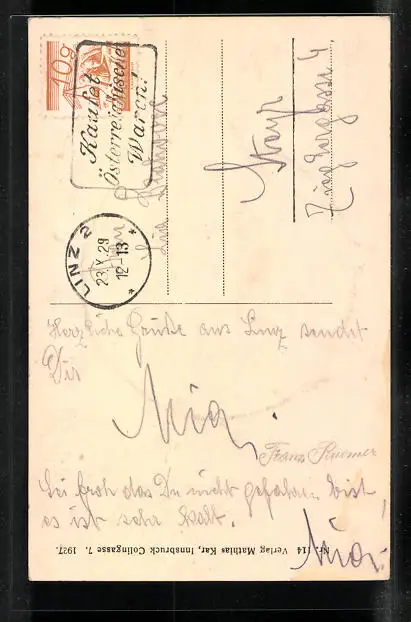 10g
Kaufet
Österreichische
Waren!
LINZ 2
23.V.29
12-13
* *
Steyr
Zieglergasse 4
Herzliche Grüße aus Linz sendet
Dir
Mia.
Franz
Sei froh das Du nicht gefahren bist,
es ist sehr kalt.
Mia.
Nr. 114 Verlag Mathias Kar, Innsbruck Colingasse 7. 1927.